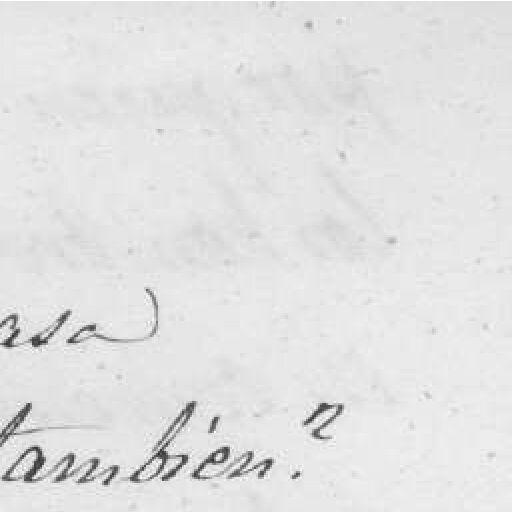 asa
tambien.n